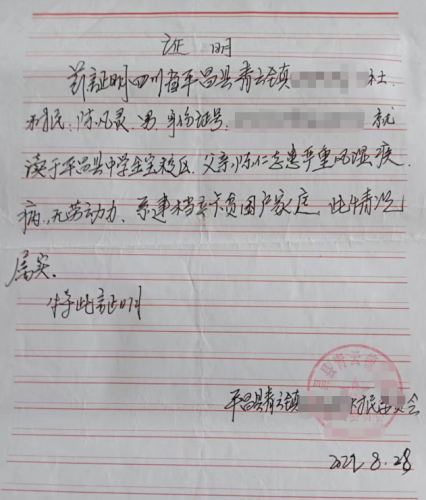 证 明
兹证明四川省平昌县青云镇 社
村民:陈凡灵、男、身份证号: 就
读于平昌县中学金宝校区、父亲陈仁志患严重风湿疾
病、无劳动力、系建档立卡贫困户家庭、此情况
属实.
特此证明
平昌县青云镇 村民委员会
2021.8.28